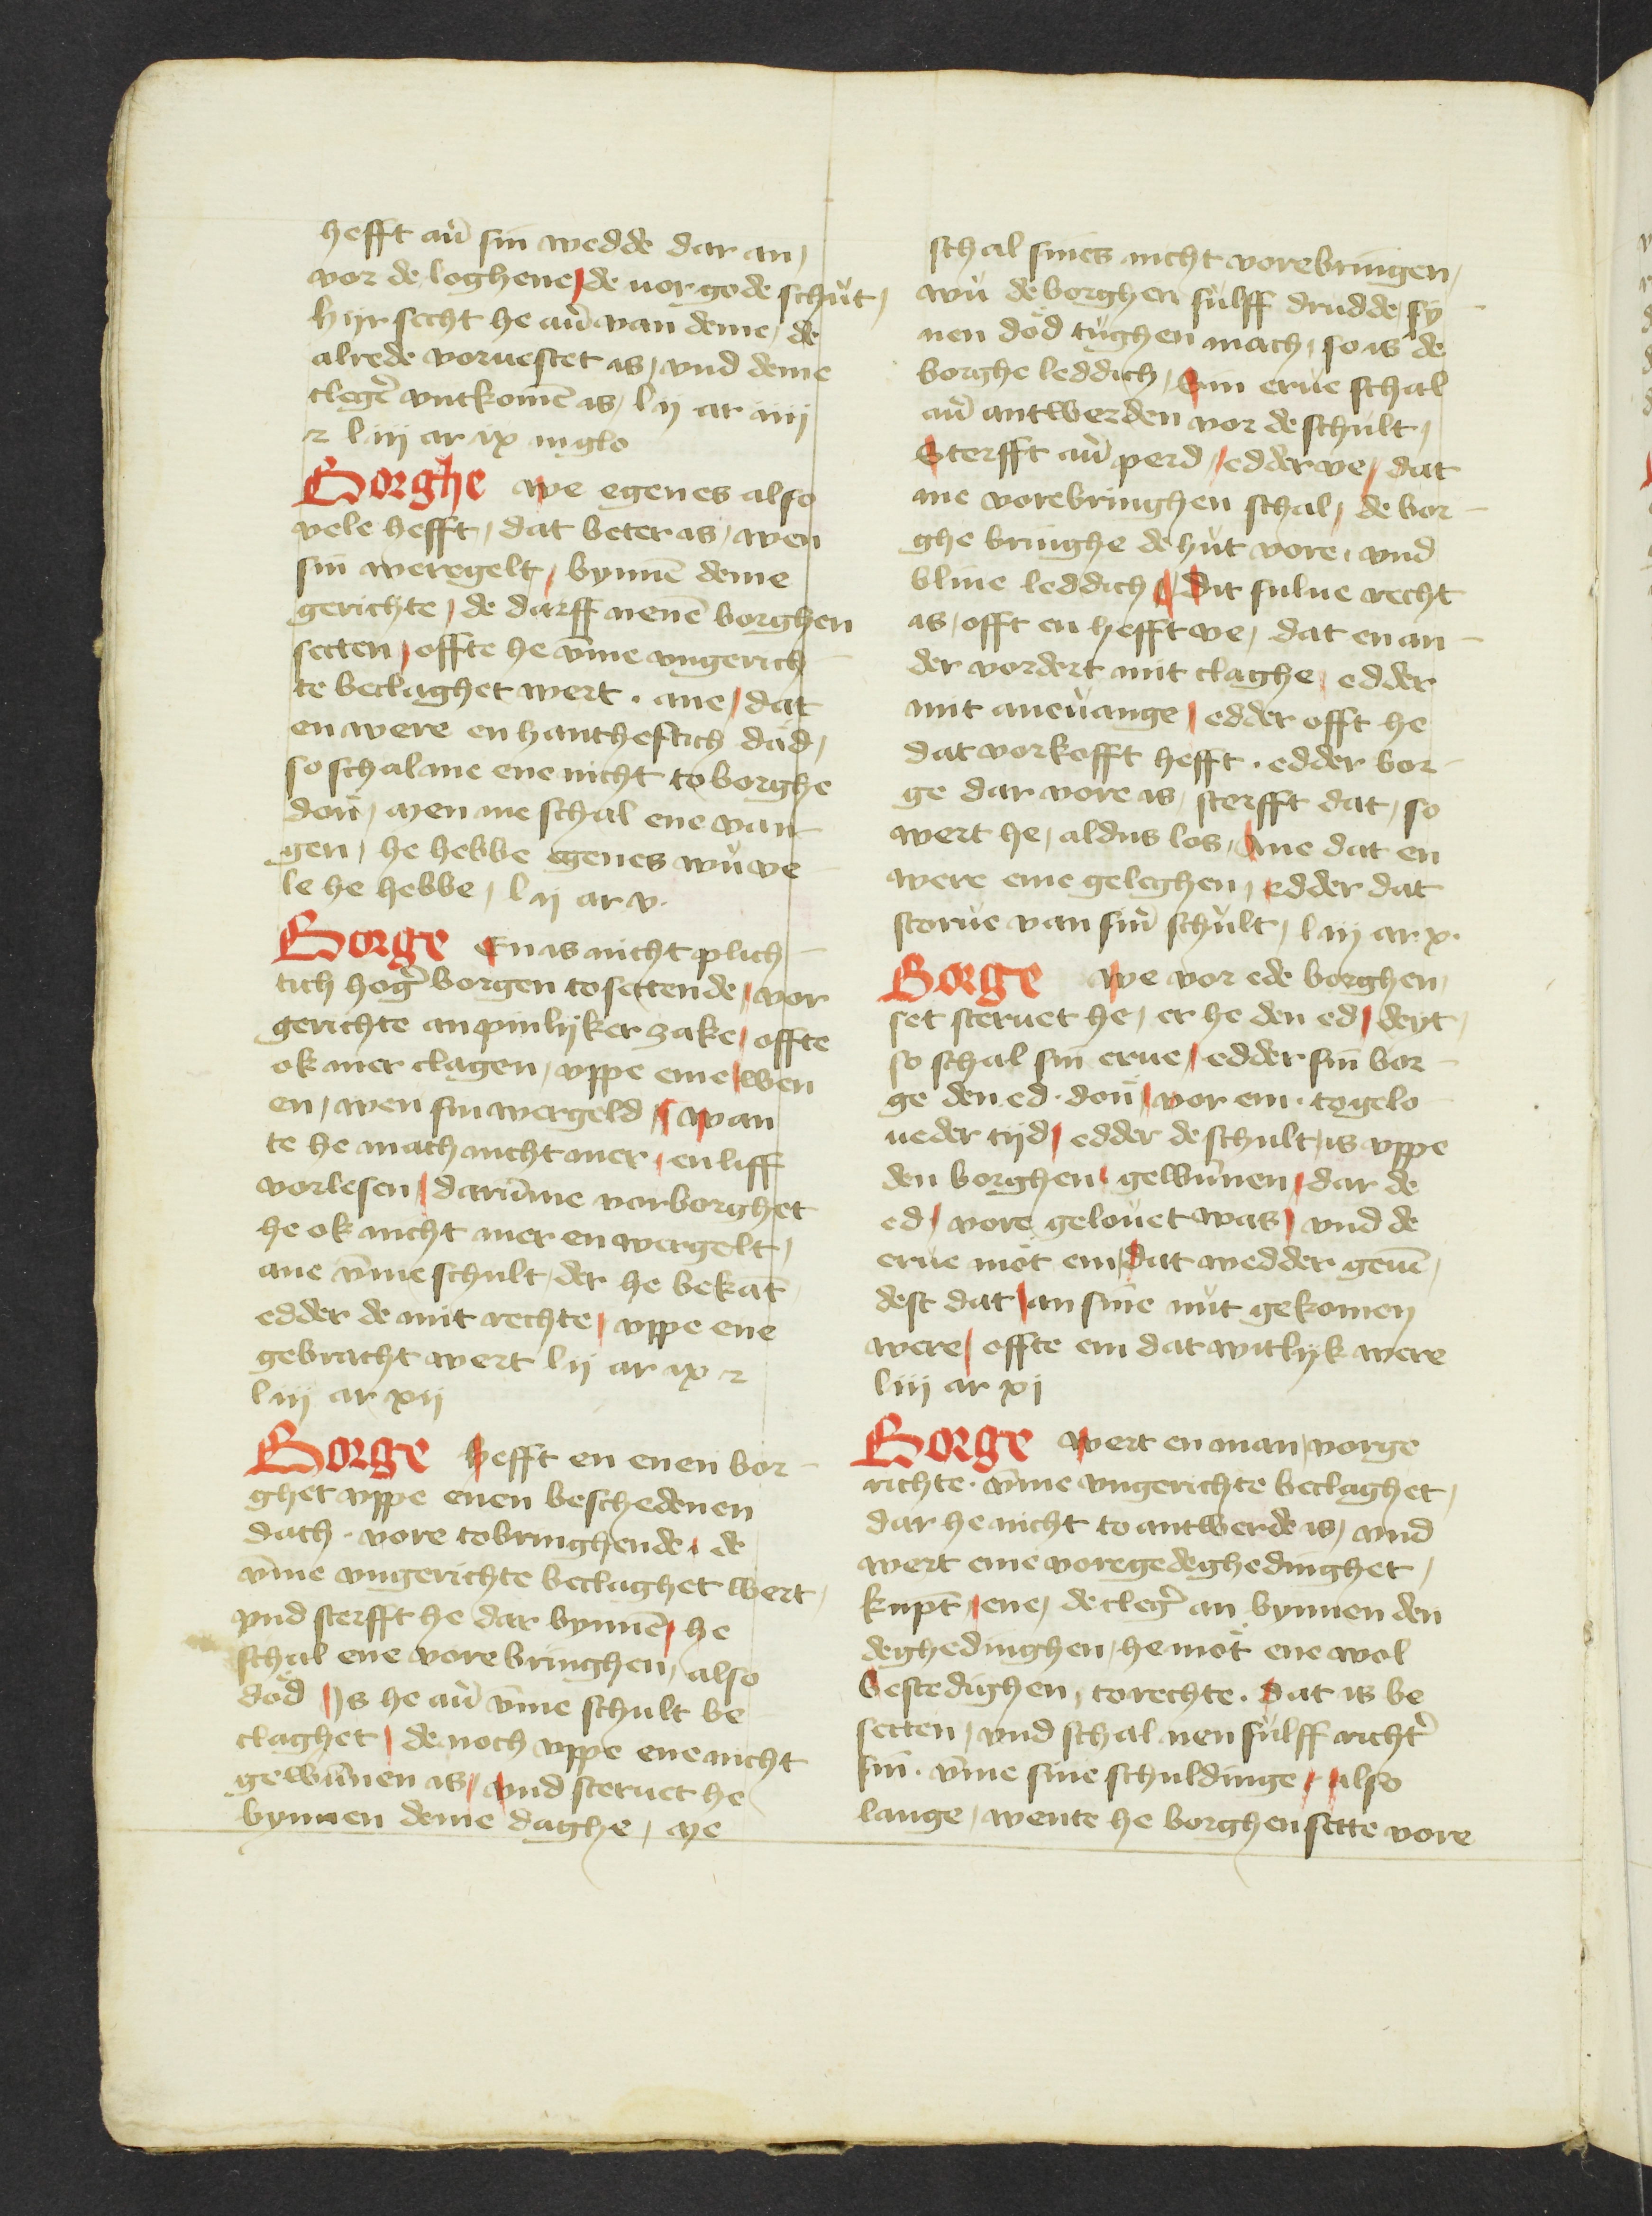 hefft auͥ sin wedde dar an /
vor de loghene / de vor gode schuͤt /
hijr secht he auͥ van deme / de
alrede voruestet is / vnd deme
clegeͥ vntkomē is / l ij ar iiij
⁊ l iij ar ix in glo
Borghe we egenes also
vele hefft / dat beter is / wen
sin weregelt / bynnē deme
gerichte / de darff nenē borghen
setten / offte he v̄me vngerich-
te beclaghet wert . ane / dat
en were en hantheftich däd /
so schal me ene nicht to borghe
don / men me schal ene van-
gen / he hebbe egenes wuͦ ve-
le he hebbe / l ij ar v.
Borge En is nicht plich-
tich hogeͥ borgen to settende / vor
gerichte an pinlyker zake / offte
ok mer clagen / vppe eme / wen
en / wen sin wergeld / wan
te he mach nicht mer / en liff
vorlesen / darūme vorborghet
he ok nicht mer en wergelt /
ane v̄me schult / der he bekāt
edder de mit rechte / vppe ene
gebracht wert l ij ar ix ⁊
l iij ar xij
Borge hefft en enen bor-
ghet vppe enen beschedenen
dach . vore tobringhende . de
v̄me vngerichte beclaghet wert /
vnd sterfft he dar bynnē / he
schal ene vore bringhen / also
död Is he auͥ v̄me schult be
claghet / de noch vppe ene nicht
gewūnen is / vnd steruet he
bynnen deme daghe / me
schal sines nicht vorebringen /
wuͦ de borghen suͤlff drudde sy-
nen död tuͤghen mach / so is de
borghe leddich / Sin erue schal
auͥ antwerden vor de schult /
Sterfft auͥ perd / edder ve / dat
me vorebringhen schal / de bor-
ghe bringhe de huͤt vore / vnd
bliue leddich / Dit sulue recht
is / offt en hefft ve / dat en an-
der vordert mit claghe / edder
mit aneuange / edder offt he
dat vorkofft hefft . edder bor-
ge dar vore is / sterfft dat / so
wert he / aldus los / Ane dat en
were eme geleghen / edder dat
storue van sinͥ schult / l iij ar x.
Borge we vor ede borghen
set steruet he / er he den ed / deyt /
so schal sin erue / edder sin bor-
ge den ed . don / vor em . to gelo
ueder tijd / edder de schult / is vppe
den borghen / gewūnen / dar de
ed / vore gelouet was / vnd de
erue möt em / dat wedder geuē /
dest dat / an sine nuͤt gekomen
were / offte em dat witlyk were
l iij ar xj
Borge wert en man / vorge
richte . v̄me vngerichte beclaghet /
dar he nicht to antwerde is / vnd
wert eme voregedeghedinghet /
kupt / ene / de clegeͥ an bynnen den
deghedinghen / he möt ene wol
bestedighen / to rechte . dat is be
setten / vnd schal nen suͤlff richtͥ
sin . v̄me sine schuldinge / also
lange / wente he borghen sette vore